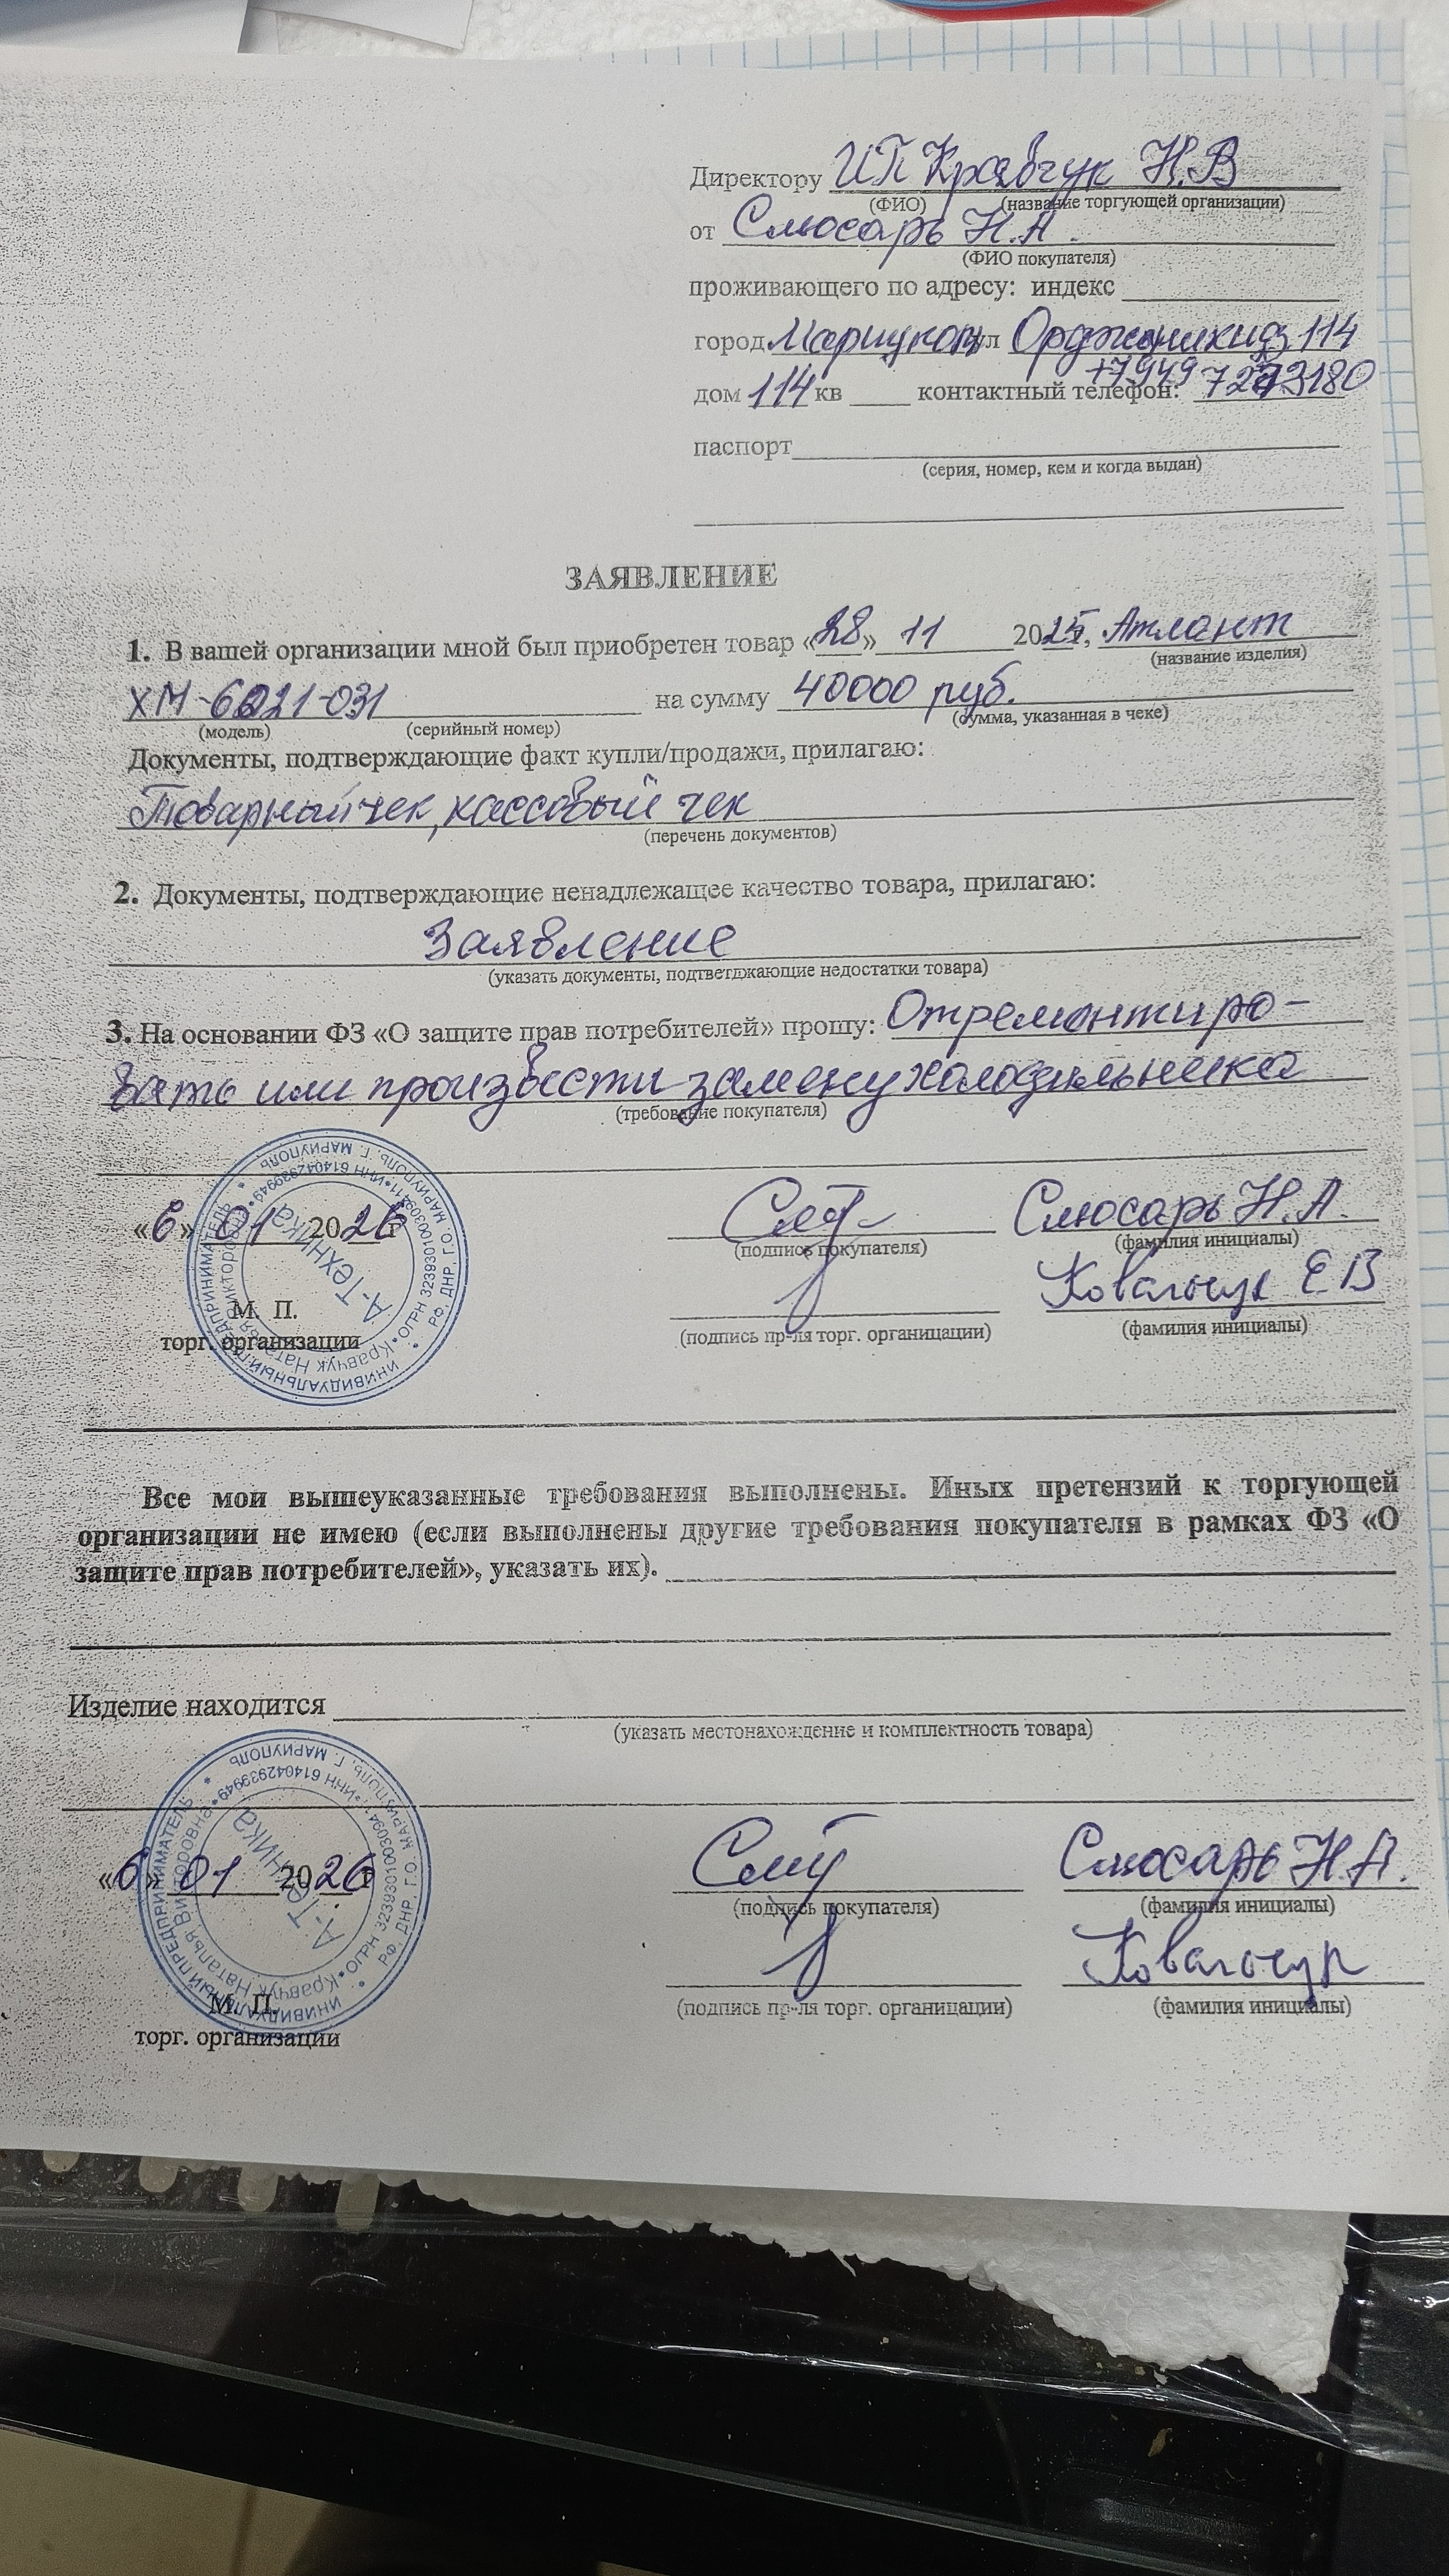 Директору ИП Кравчук Н.В
(ФИО) (название торгующей организации)
от Слюсарь Н.А.
(ФИО покупателя)
проживающего по адресу: индекс
город Мариуполь ул Орджоникидз 114
дом 114 кв контактный телефон: +7949
паспорт
(серия, номер, кем и когда выдан)
ЗАЯВЛЕНИЕ
1. В вашей организации мной был приобретен товар «28» 11 2025, Атлант
(название изделия)
ХМ-6021-031 на сумму 40000 руб.
(модель) (серийный номер) (сумма, указанная в чеке)
Документы, подтверждающие факт купли/продажи, прилагаю:
Товарный чек, кассовый чек
(перечень документов)
2. Документы, подтверждающие ненадлежащее качество товара, прилагаю:
Заявление
(указать документы, подтветджающие недостатки товара)
3. На основании ФЗ «О защите прав потребителей» прошу: Отремонтиро-
вать или произвести замену холодильника
(требование покупателя)
«6» 01 2026 г Слюсарь Н.А.
(подпись покупателя) (фамилия инициалы)
Ковальчук Е В
М. П.
торг. организации (подпись пр-ля торг. органицации) (фамилия инициалы)
ИНИВИДУАЛЬНЫЙ ПРЕДПРИНИМАТЕЛЬ
Кравчук Наталья Викторовна
А-Техника
РФ, ДНР, Г.О. МАРИУПОЛЬ, Г. МАРИУПОЛЬ
ИНН 614042939949
Все мои вышеуказанные требования выполнены. Иных претензий к торгующей
организации не имею (если выполнены другие требования покупателя в рамках ФЗ «О
защите прав потребителей», указать их).
Изделие находится
(указать местонахождение и комплектность товара)
«6» 01 2026 г Слюсарь Н.А.
(подпись покупателя) (фамилия инициалы)
Ковальчук
(подпись пр-ля торг. органицации) (фамилия инициалы)
М. П.
торг. организации
ИНИВИДУАЛЬНЫЙ ПРЕДПРИНИМАТЕЛЬ
Кравчук Наталья Викторовна
А-Техника
РФ, ДНР, Г.О. МАРИУПОЛЬ, Г. МАРИУПОЛЬ
ИНН 614042939949